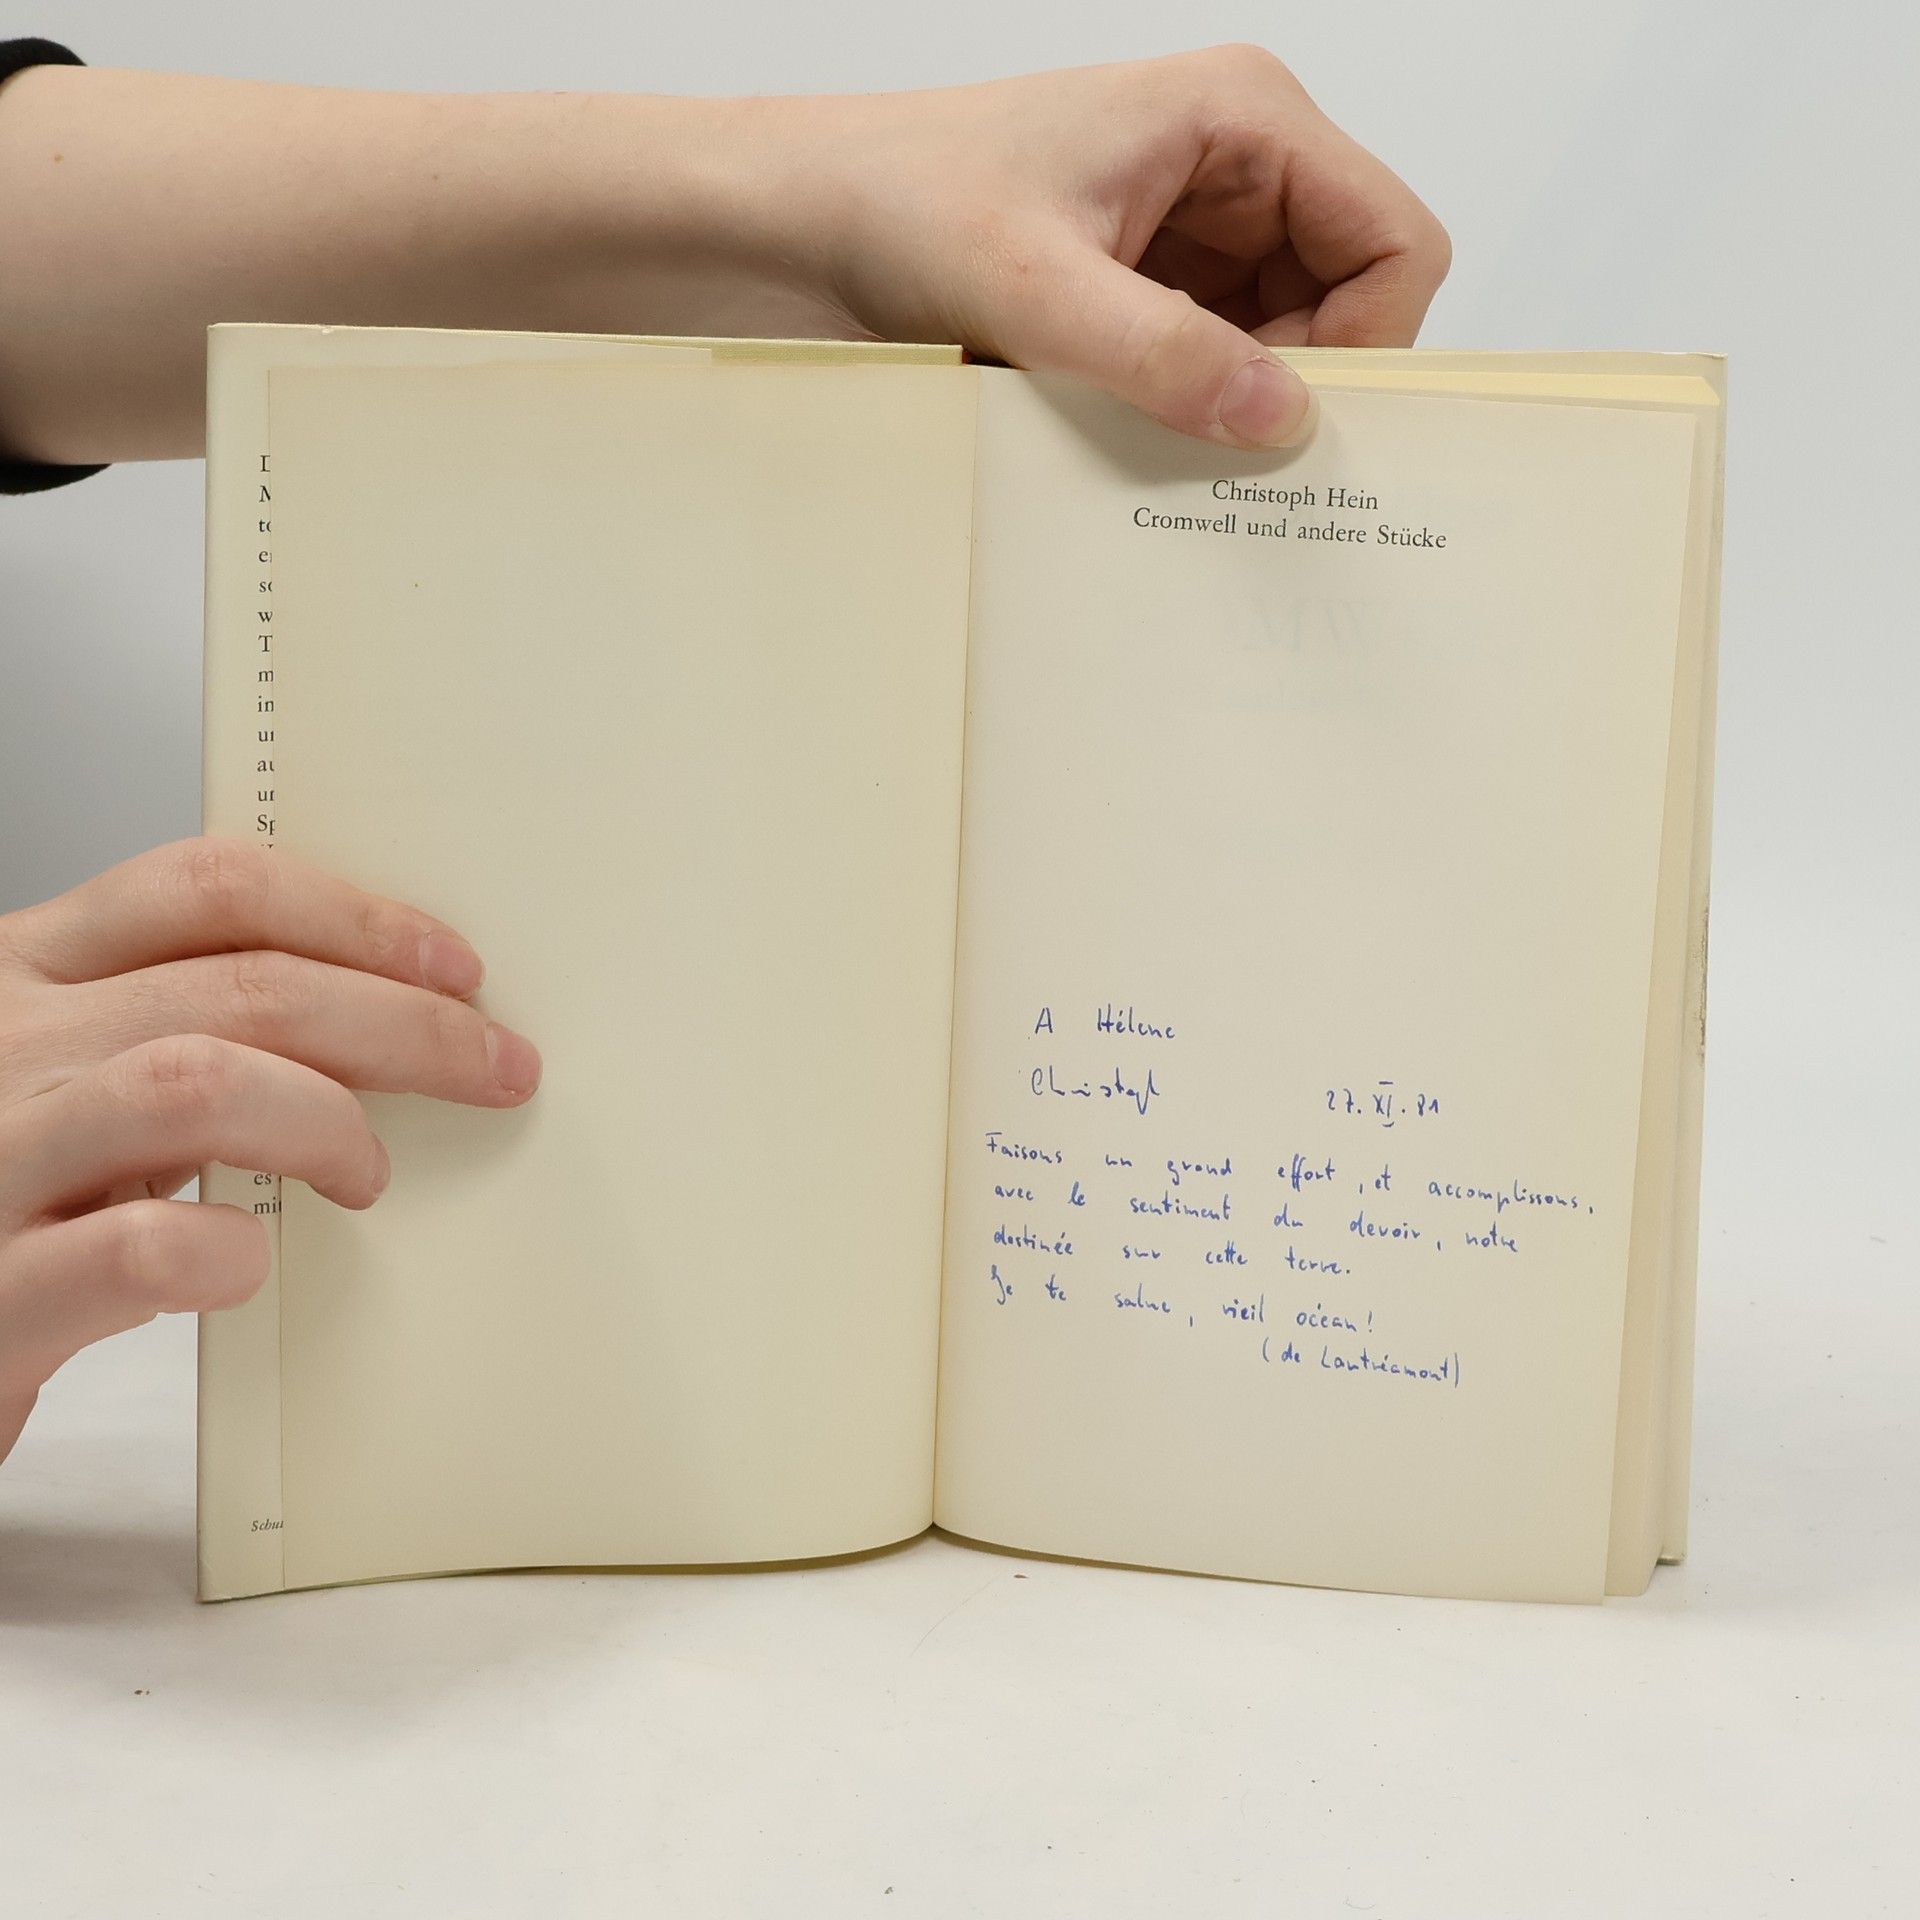 D
M
to
so
w
T
m
in
au
Sp
es
mit
Schu
Christoph Hein
Cromwell und andere Stücke
A Hélène
Christoph 27. XI. 81
Faisons un grand effort, et accomplissons,
avec le sentiment du devoir, notre
destinée sur cette terre.
Je te salue, vieil océan!
(de Lautréamont)